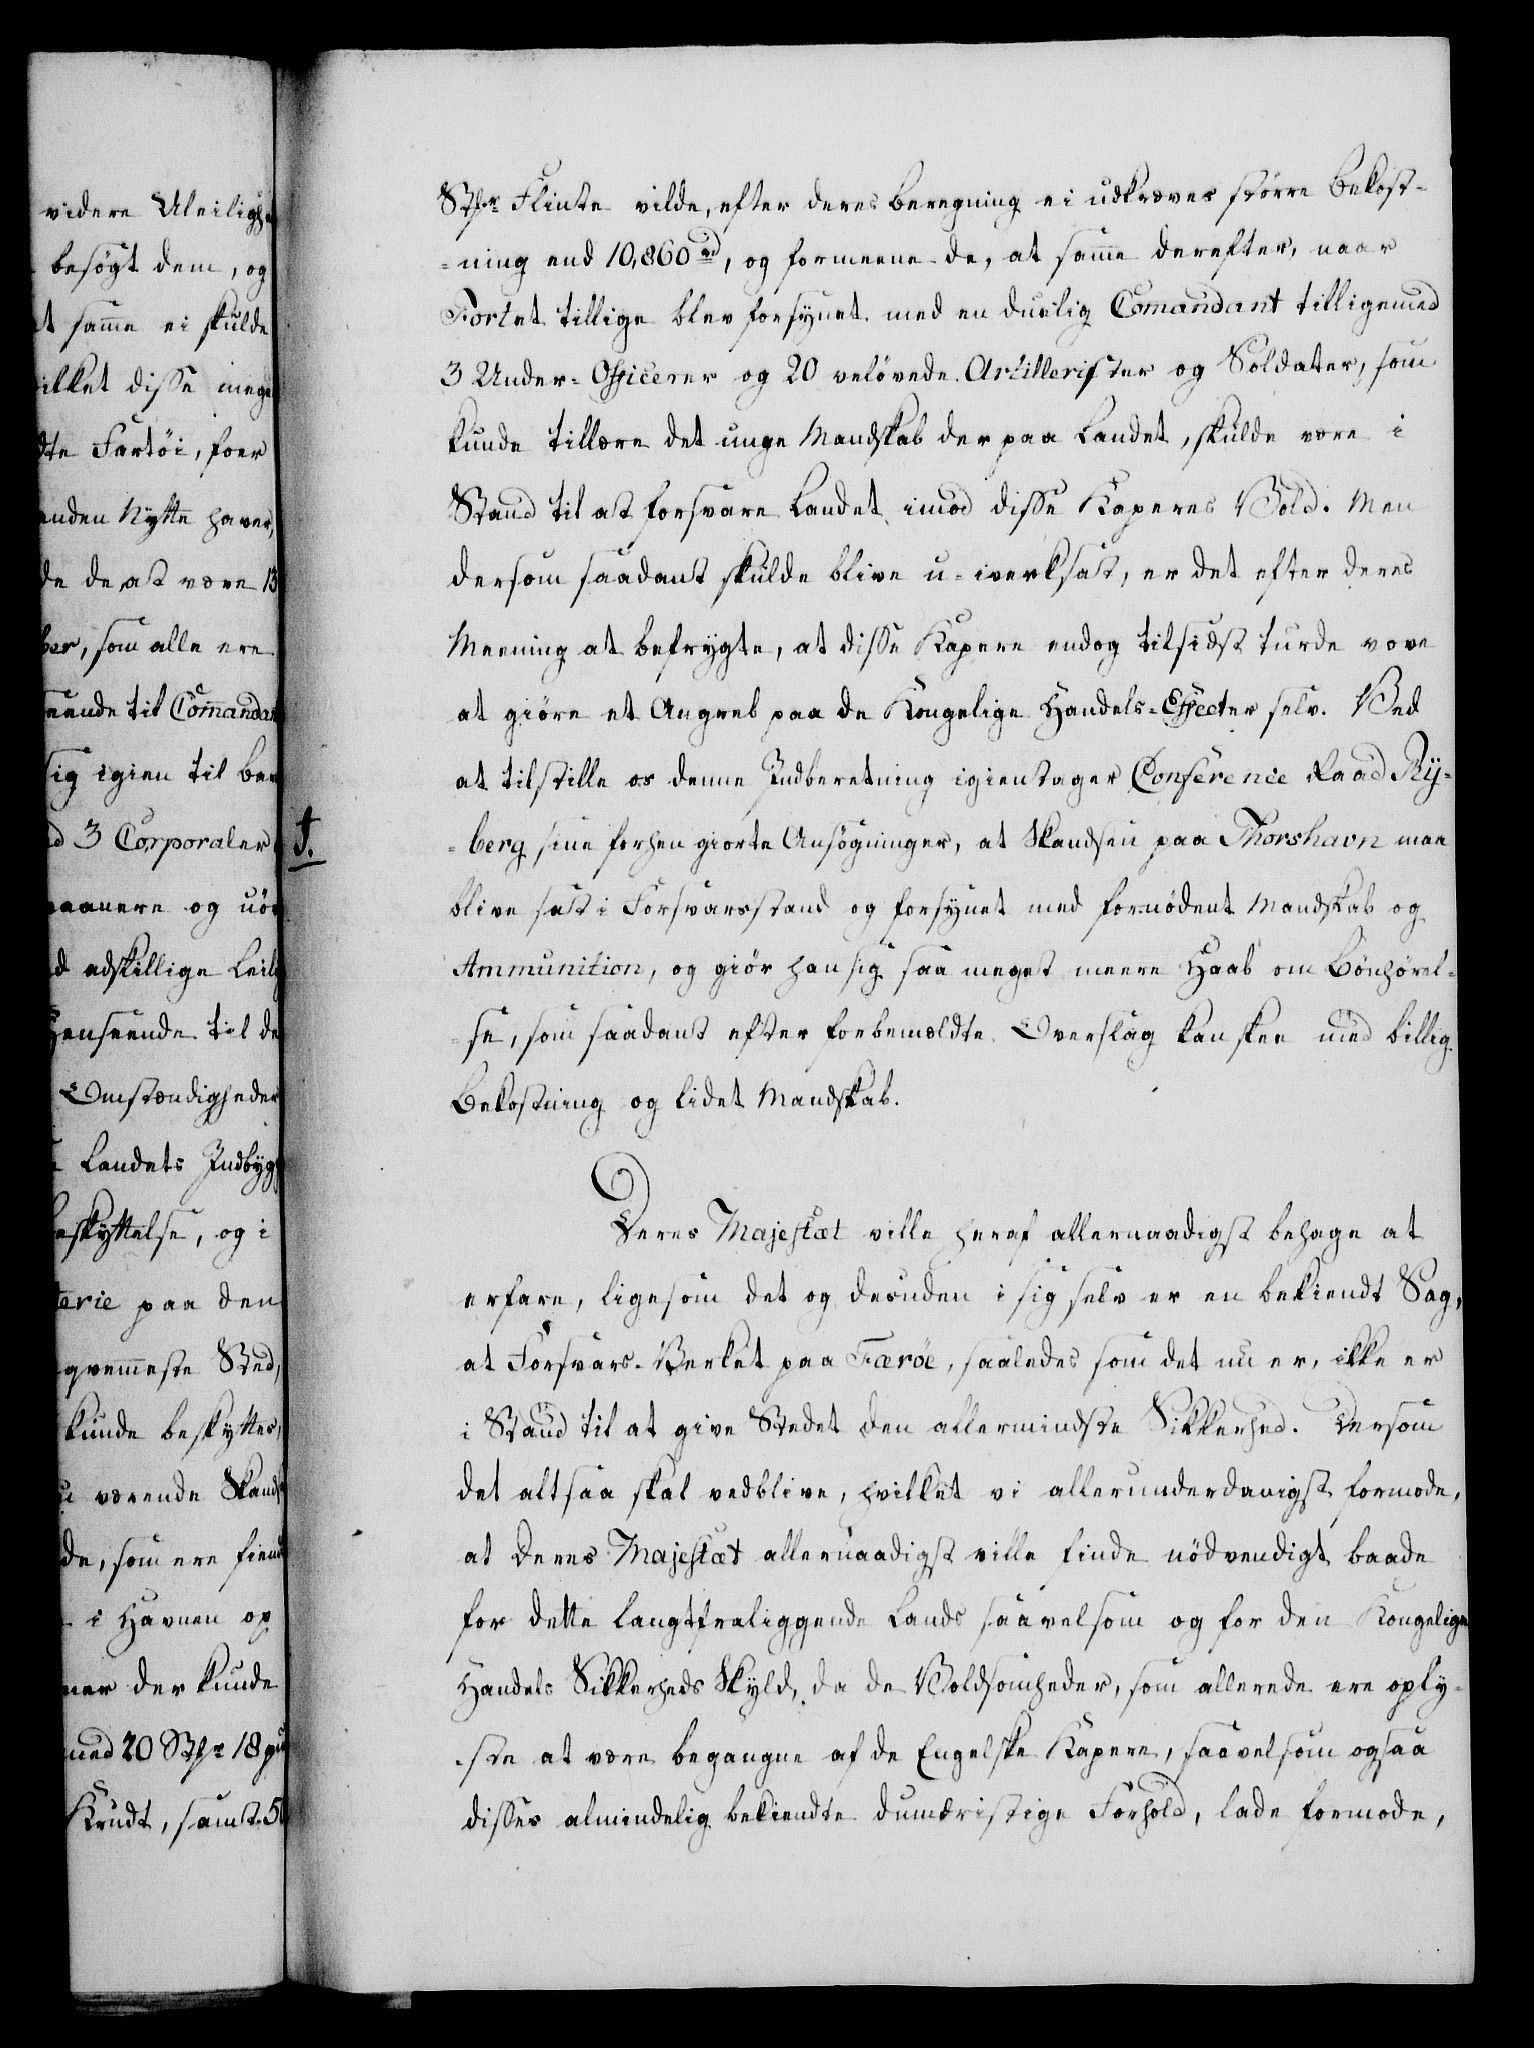 videre Uleilighe
besøgt dem, og
t samme ei skulde
ilket disse mege
dte Fartöi, foer
anden Nytte haver,
de de at være 13
ber, som alle ere
eende til Com̄andan
sig igien til ber
d 3 Corporaler
aanere og uö
d adskillige Leili
Henseende til de
Omstændigheder
Landets Indbygg
eskyttelse, og i
terie paa den
qvem̄este Sted,
kunde beskyttes,
værende Skands
de, som ere fiend
i Havnen op
ner der kunde
med 20 Stkr 18 pu
Krudt, samt 5
Stkr Flinte vilde, efter deres Beregning ei udkræves större Bekost-
-ning end 10,860 rd, og formeene de, at sam̄e derefter, naar
Fortet tillige blev forsÿnet med en duelig Com̄andant tilligemed
3 Under-Officerer og 20 veløvede Artillerister og Soldater, som
kunde tillære det unge Mandskab der paa Landet, skulde være i
Stand til at forsvare Landet imod disse Kaperes Vold. Men
dersom saadant skulde blive u-iverksat, er det efter deres
Meening at befrygte, at disse Kapere endog tilsidst turde vove
at giöre et Angreb paa de Kongelige Handels-Effecter selv. Ved
at tilstille os denne Indberetning igientager Conference Raad Rÿ-
-berg sine forhen giorte Ansögninger, at Skandsen paa Thorshavn maa
blive sat i Forsvarsstand og forsynet med fornödent Mandskab og
Ammunition, og giör han sig saa meget meere Haab om Bönhörel-
-se, som saadant efter foebemældte Overslag kan skee med billig
Bekostning og lidet Mandskab.
Deres Majestæt ville heraf allernaadigst behage at
erfare, ligesom det og desuden i sig selv er en bekiendt Sag,
at Forsvars-Verket paa Færöe, saaledes som det nu er, ikke er
i Stand til at give Stedet den allermindste Sikkerhed. Dersom
det altsaa skal vedblive, hvilket vi allerunderdanigst formode,
at Deres Majestæt allernaadigst ville finde nödvendigt baade
for dette langtfraliggende Lands saavelsom og for den Kongelige
Handels Sikkerheds Skyld, da de Voldsomheder, som allerede ere oply-
-ste at være begangne af de Engelske Kapere, saavelsom ogsaa
disses almindelig bekiendte dumdristige Forhold, lade formode,